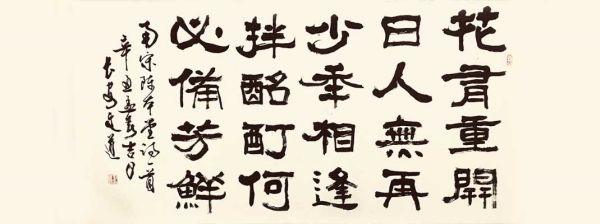 花有重開
日人無再
少年相逢
拌酩酊何
必備芳鮮
南宋陳本堂詩一首
辛丑孟冬吉月
長安文道